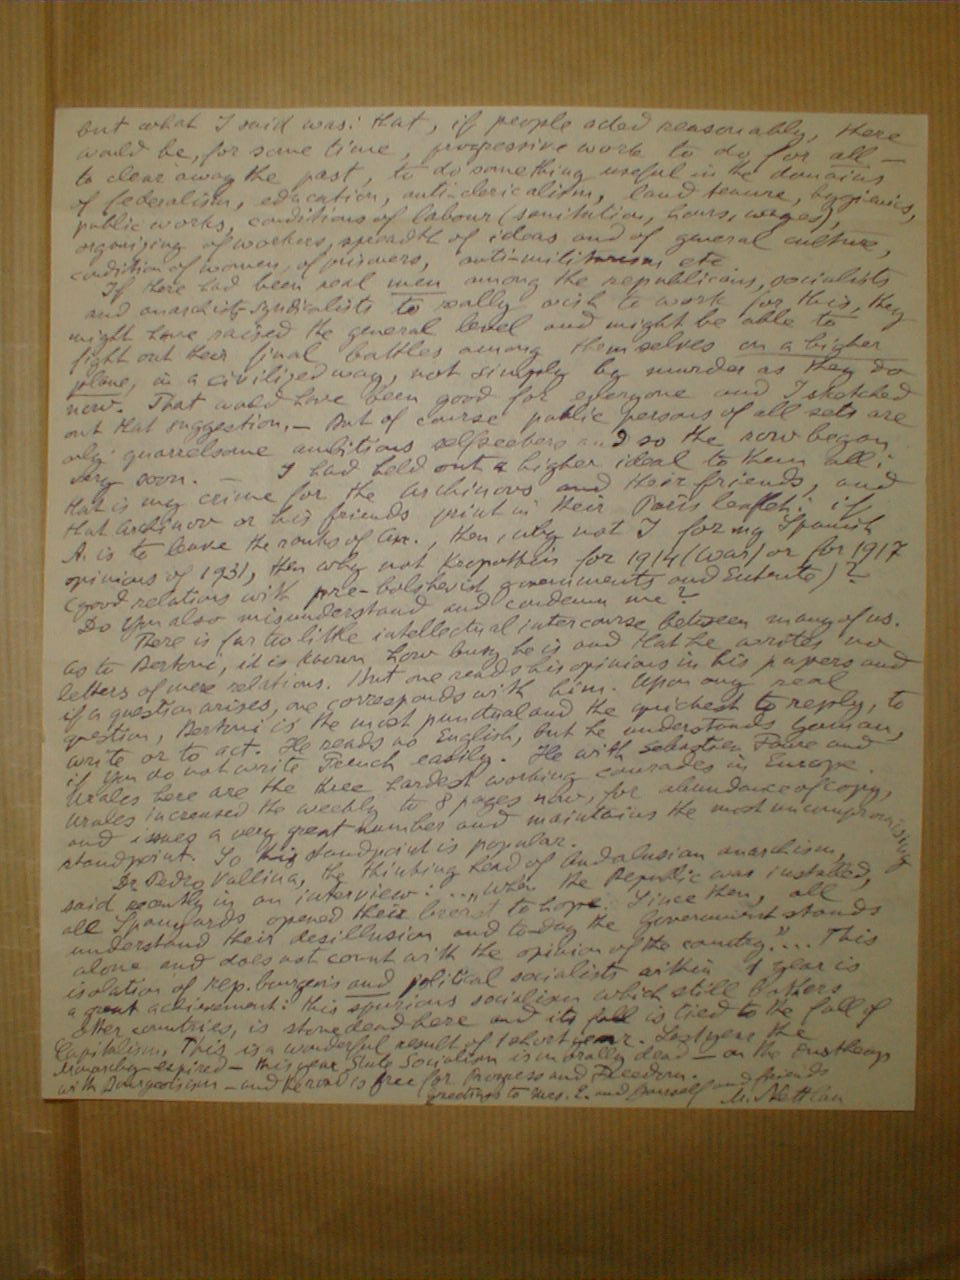 but what I said was: that, if people acted reasonably, there
would be, for some time, progressive work to do for all —
to clear away the past, to do something useful in the domains
of federalism, education, anti-clericalism, land tenure, hygienics,
public works, conditions of labour (sanitation, hours, wages),
organising of workers, spreadth of ideas and of general culture,
condition of women, of prisoners, anti-militarism, etc
If there had been real men among the republicans, socialists
and anarchist-syndicalists to really wish to work for this, they
might have raised the general level and might be able to
fight out their final battles among themselves on a higher
plane, in a civilized way, not simply by murder as they do
now. That would have been good for everyone and I sketched
out that suggestion. — But of course public persons of all sets are
only quarrelsome ambitious selfseekers and so the row began
very soon. — I had held out a higher ideal to them all:
that is my crime for the Archinovs and their friends, and
that Archinov or his friends print in their Paris leaflet: if
A. is to leave the ranks of an., then, why not I for my Spanish
opinions of 1931, then why not Kropotkin for 1914 (war) or for 1917
(good relations with pre-bolshevist governments and Entente)?
Do you also misunderstand and condemn me?
There is far too little intellectual intercourse between many of us.
As to Bertoni, it is known how busy he is and that he writes no
letters of mere relations. But one reads his opinions in his papers and
if a question arises, one corresponds with him. Upon any real
question, Bertoni is the most punctual and the quickest to reply, to
write or to act. He reads no English, but he understands German,
if you do not write French easily. He with Sebastien Faure and
Urales here are the three hardest working comrades in Europe.
Urales increased the weekly to 8 pages now, for abundance of copy,
and issues a very great number and maintains the most uncompromising
standpoint. So this standpoint is popular.
Dr. Pedro Vallina, the thinking head of Andalusian anarchism,
said recently in an interview: "... When the Republic was installed,
all Spaniards opened their breast to hope. Since then, all
understand their desillusion and to-day the Government stands
alone and does not count with the opinion of the country." ... This
isolation of rep. bourgeois and political socialists within 1 year is
a great achievement: this spurious socialism which still
other countries, is stone dead here and its fall is tied to the fall of
Capitalism. This is a wonderful result of 1 short year. Last year the
Monarchy expired — this year State Socialism is morally dead — on the
with Bourgeoisism — and the road is free for Progress and Freedom.
greetings to Mrs. E. and yourself and friends
M. Nettlau